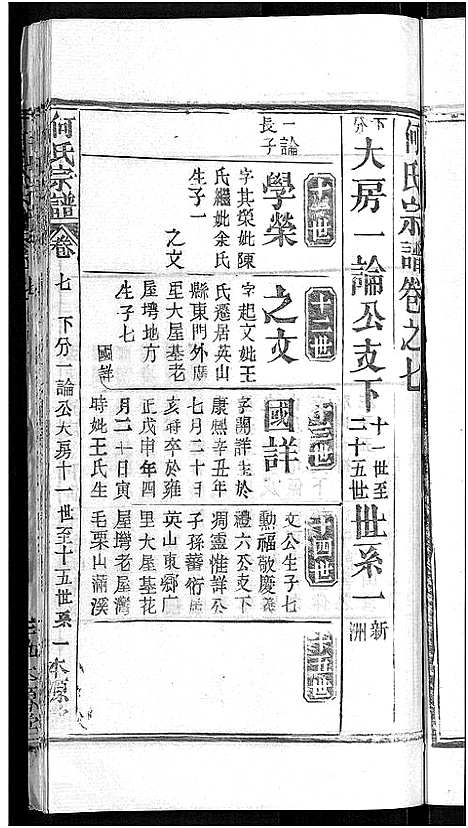 何氏宗譜卷之七
下分 大房一論公支下 十一世至二十五世 世系一 新洲
十一世
一論長子
學榮
字其榮妣陳
氏繼妣余氏
生子一
之文
十二世
之文
字起文妣王
氏遷居英山
縣東門外廣
至大屋基老
屋塆地方
生子七
國詳
十三世
國詳
字開詳生於
康熙辛丑年
七月二十日
亥時卒於雍
正戊申年四
月二十日寅
時妣王氏生
十四世
文公生子七
勲福敬慶義
禮六公支下
凋靈惟詳公
子孫蕃衍居
英山東鄉广
里大屋基花
屋塆老屋灣
毛栗山滿溪
十五世
何氏宗譜 卷七 下分一論公大房十一世至十五世系一